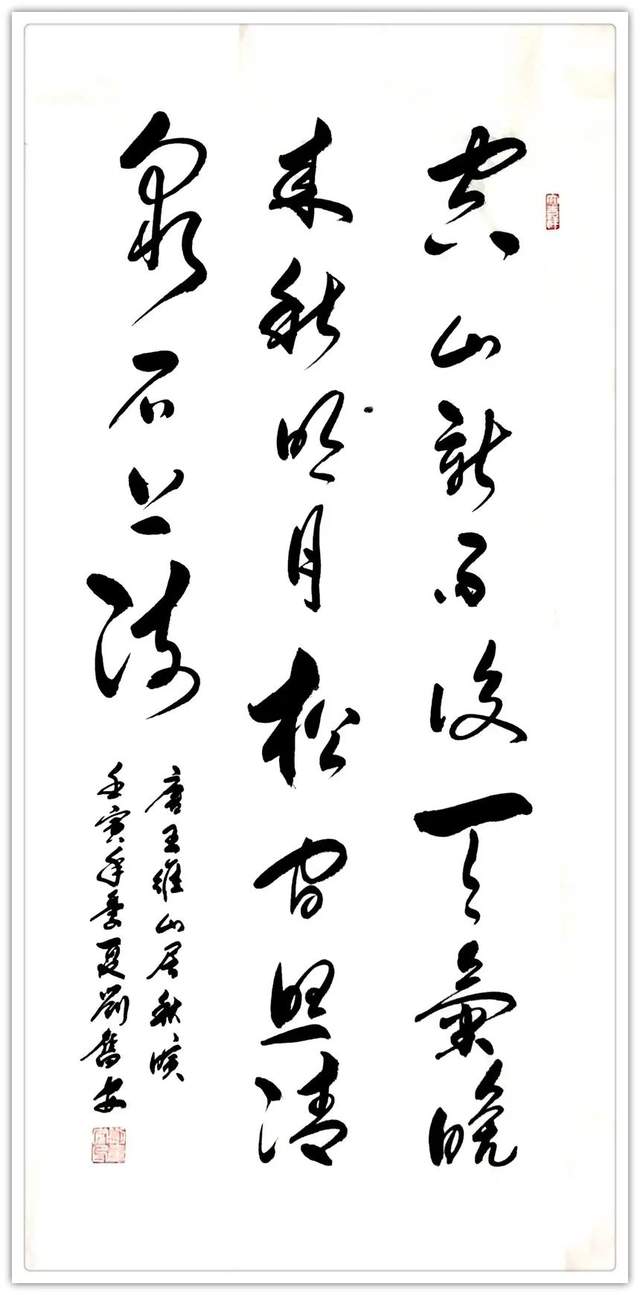 空山新雨後天氣晚
来秋明月松间照清
泉石上流
唐王維山居秋暝
壬寅年季夏劉奮安